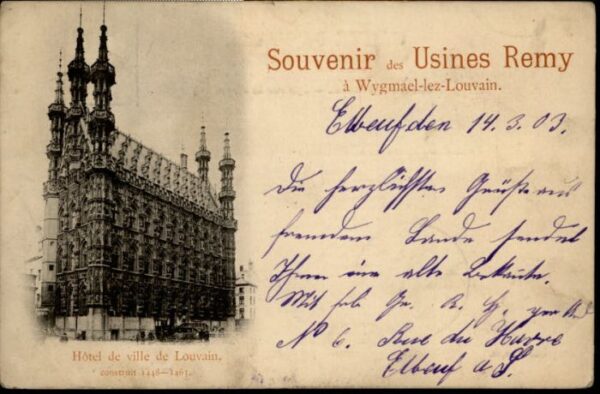 Souvenir des Usines Remy
à Wygmael-lez-Louvain.
Elbeuf den 14.3.03.
Die herzlichsten Grüße aus
fremdem Lande sendet
Ihnen eine alte Bekannte.
Mit
No 6. Rue du Havre
Elbeuf a S.
Hôtel de ville de Louvain,
construit 1448—1463.